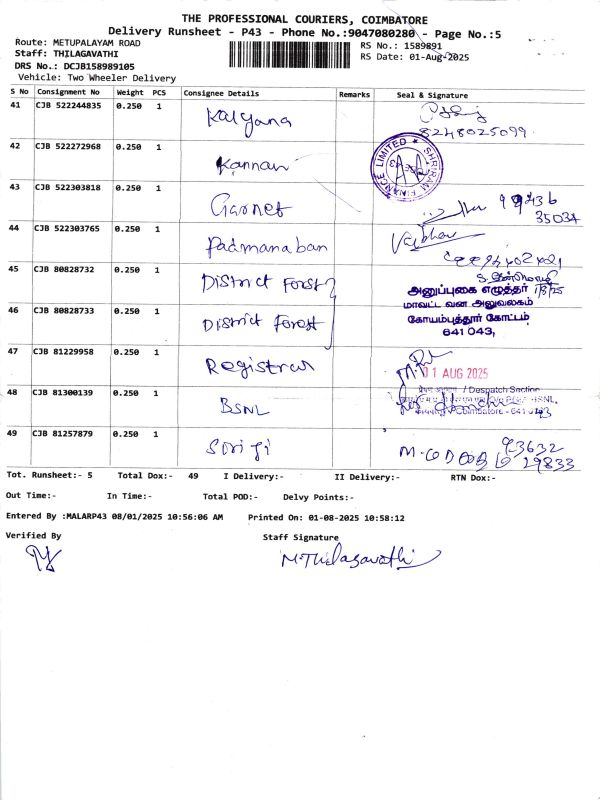 THE PROFESSIONAL COURIERS, COIMBATORE
Delivery Runsheet - P43 - Phone No.:9047080280 - Page No.:5
Route: METUPALAYAM ROAD
Staff: THILAGAVATHI
DRS No.: DCJB158989105
Vehicle: Two Wheeler Delivery
RS No.: 1589891
RS Date: 01-Aug-2025
S No Consignment No Weight PCS Consignee Details Remarks Seal & Signature
41 CJB 522244835 0.250 1 Kalyana 8248025099
42 CJB 522272968 0.250 1 Kannan SHRIRAM FINANCE LIMITED
43 CJB 522303818 0.250 1 Garnet 35034
44 CJB 522303765 0.250 1 Padmanaban
45 CJB 80828732 0.250 1 District Forest 1/8/25
அனுப்புகை எழுத்தர்
மாவட்ட வன அலுவலகம்
கோயம்புத்தூர் கோட்டம்
641 043,
46 CJB 80828733 0.250 1 District Forest
47 CJB 81229958 0.250 1 Registrar 01 AUG 2025
48 CJB 81300139 0.250 1 BSNL / Despatch Section
BSNL,
Coimbatore - 641 043
49 CJB 81257879 0.250 1 93632
29833
Tot. Runsheet:- 5 Total Dox:- 49 I Delivery:- II Delivery:- RTN Dox:-
Out Time:- In Time:- Total POD:- Delvy Points:-
Entered By :MALARP43 08/01/2025 10:56:06 AM Printed On: 01-08-2025 10:58:12
Verified By Staff Signature
M.Thilagavathi